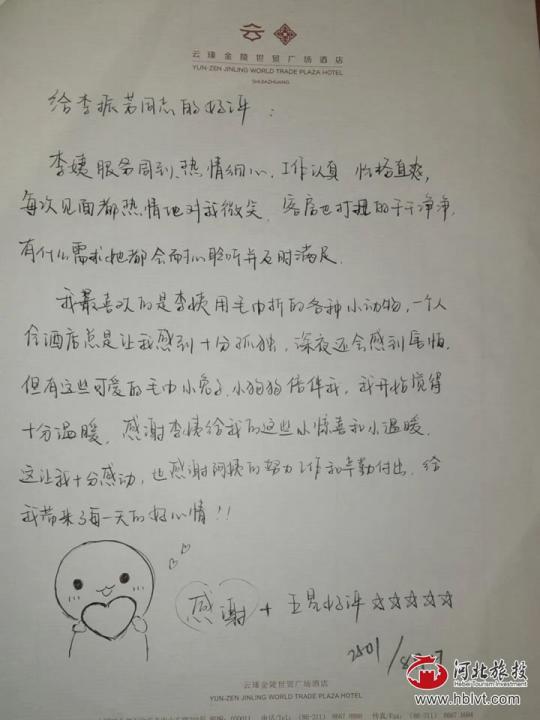 云
云瑧金陵世贸广场酒店
YUN-ZEN JINLING WORLD TRADE PLAZA HOTEL
SHIJIAZHUANG
给李振芳同志的好评：
李姨服务周到、热情细心，工作认真 性格直爽，
每次见面都热情地对我微笑，客房也打理的干干净净，
有什么需求她都会耐心聆听并及时满足。
我最喜欢的是李姨用毛巾折的各种小动物，一个人
住酒店总是让我感到十分孤独，深夜还会感到害怕，
但有这些可爱的毛巾小兔子、小狗狗陪伴我，我开始觉得
十分温暖，感谢李姨给我的这些小惊喜和小温暖，
这让我十分感动，也感谢阿姨的努力工作和辛勤付出，给
我带来了每一天的好心情！！
感谢 + 五星好评 ☆☆☆☆☆
2801/
云瑧金陵世贸广场酒店
YUN-ZEN JINLING WORLD TRADE PLAZA HOTEL
河北旅投
Hebei Tourism Investment
www.hblvt.com